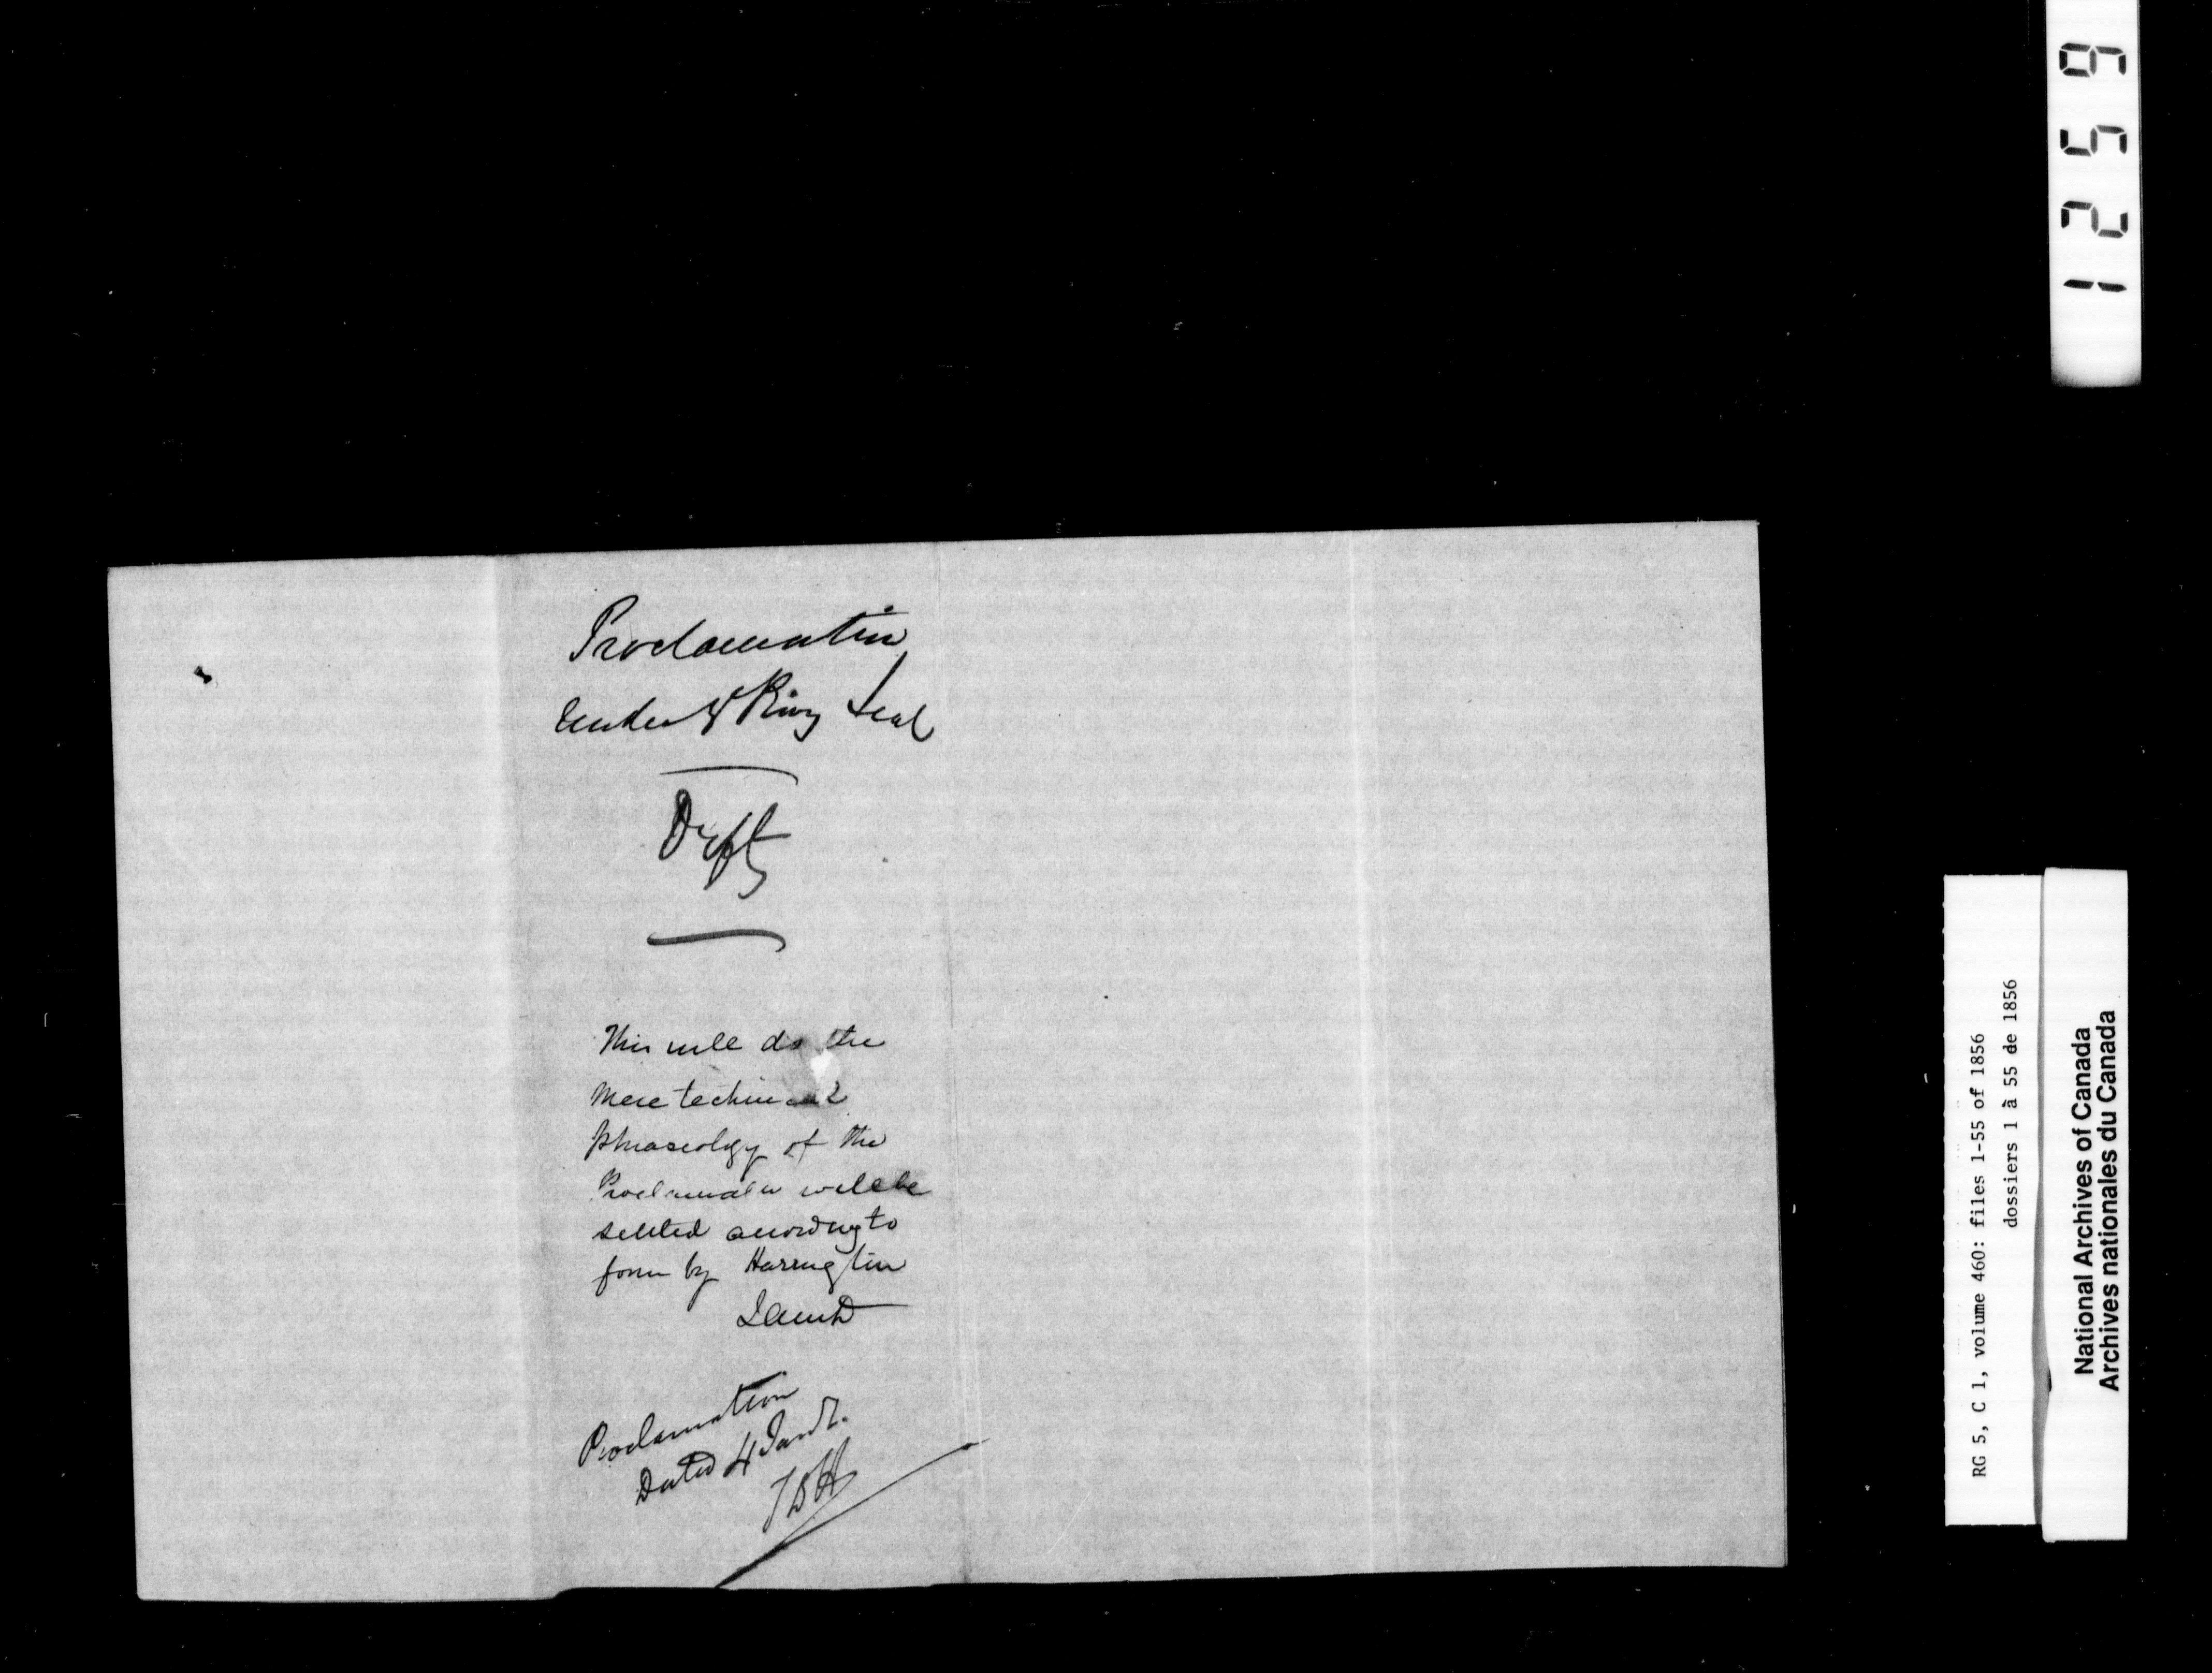 Proclamation
Under Privy Seal
Draft
This will do the
mere technical
phraseology of the
Proclamation will be
settled according to
form by Harrington
Proclamation
Dated 4 Jan
TDH
1259
RG 5, C 1, volume 460: files 1-55 of 1856
dossiers 1 à 55 de 1856
National Archives of Canada
Archives nationales du Canada